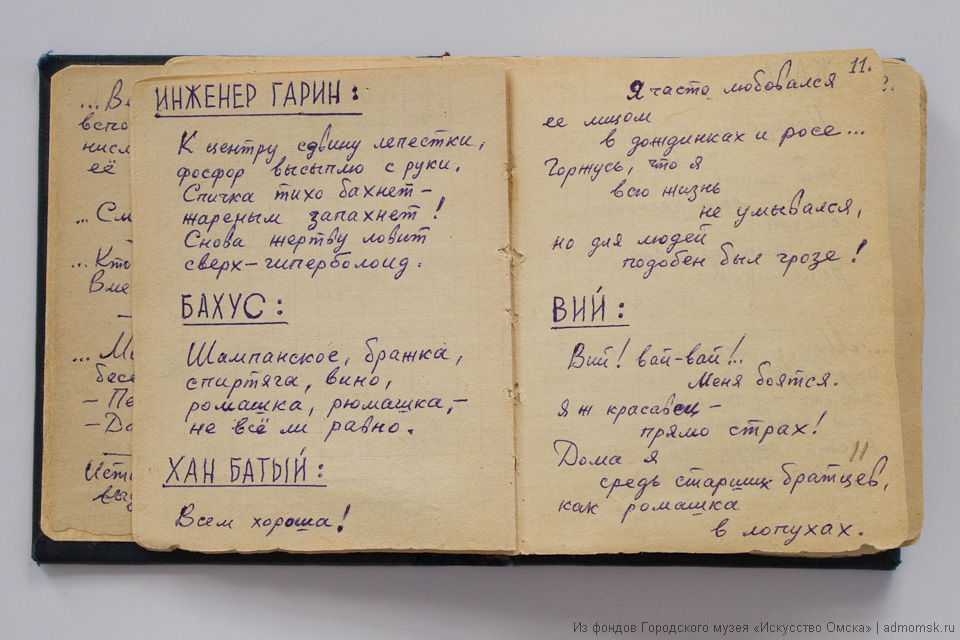 ...Ве
вспо
числ
её
...См
...Кто
Вме
...Мы
бас
– Пе
– До
Исто
выд
ИНЖЕНЕР ГАРИН:
К центру сдвину лепестки,
фосфор высыплю с руки.
Спичка тихо бахнет –
жареным запахнет!
Снова жертву ловит
сверх-гиперболоид.
БАХУС:
Шампанское, бражка,
спиртяга, вино,
ромашка, рюмашка, –
не всё ли равно.
ХАН БАТЫЙ:
Всем хороша!
11.
Я часто любовался
ее лицом
в дождинках и росе...
Горжусь, что я
всю жизнь
не умывался,
но для людей
подобен был грозе!
ВИЙ:
Вий! вай-вай!..
Меня боятся.
Я ж красавец –
прямо страх!
Дома я
11
средь старших братцев,
как ромашка
в лопухах.
2.
Из фондов Городского музея «Искусство Омска» | admomsk.ru